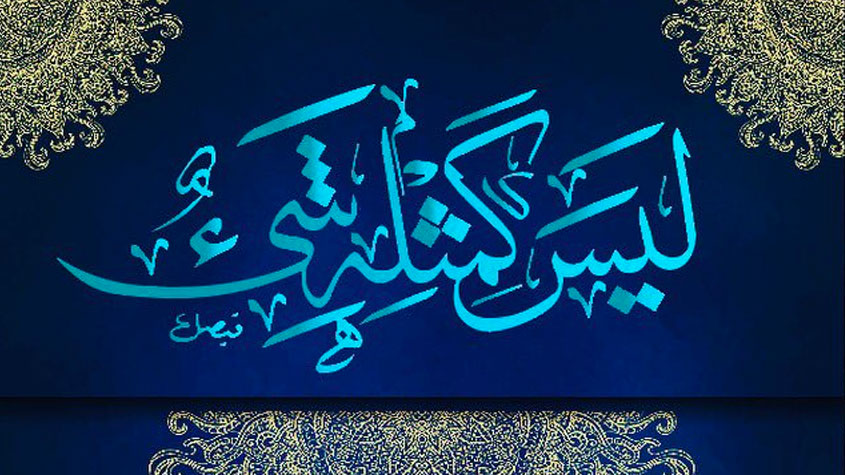 لَيسَ كَمِثلِهِ شَيءٌ
فيصل